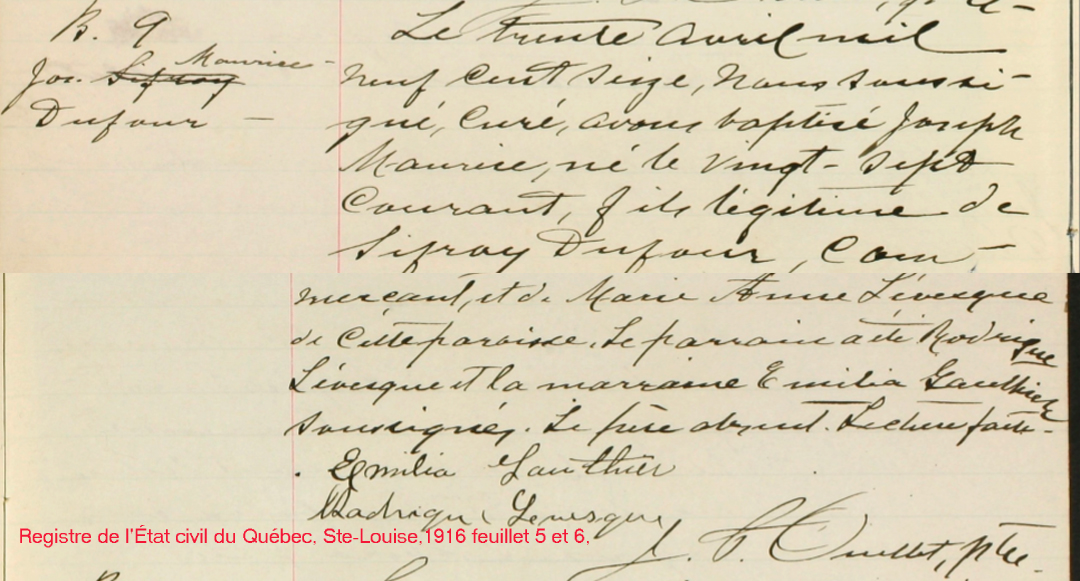 B. 9
Jos. Sifroy Maurice
Dufour
Le trente avril mil
neuf cent seize, nous soussi-
gné, curé, avons baptisé Joseph
Maurice, né le vingt-sept
courant, fils légitime de
Sifroy Dufour, com-
merçant, et de Marie Anne Lévesque
de cette paroisse. Le parrain a été Rodrigue
Lévesque et la marraine Emilia Gauthier
soussignés. Le père absent. Lecture faite.
Emilia Gauthier
Rodrigue Levesque
Ouellet, ptre
Registre de l'État civil du Québec, Ste-Louise,1916 feuillet 5 et 6,